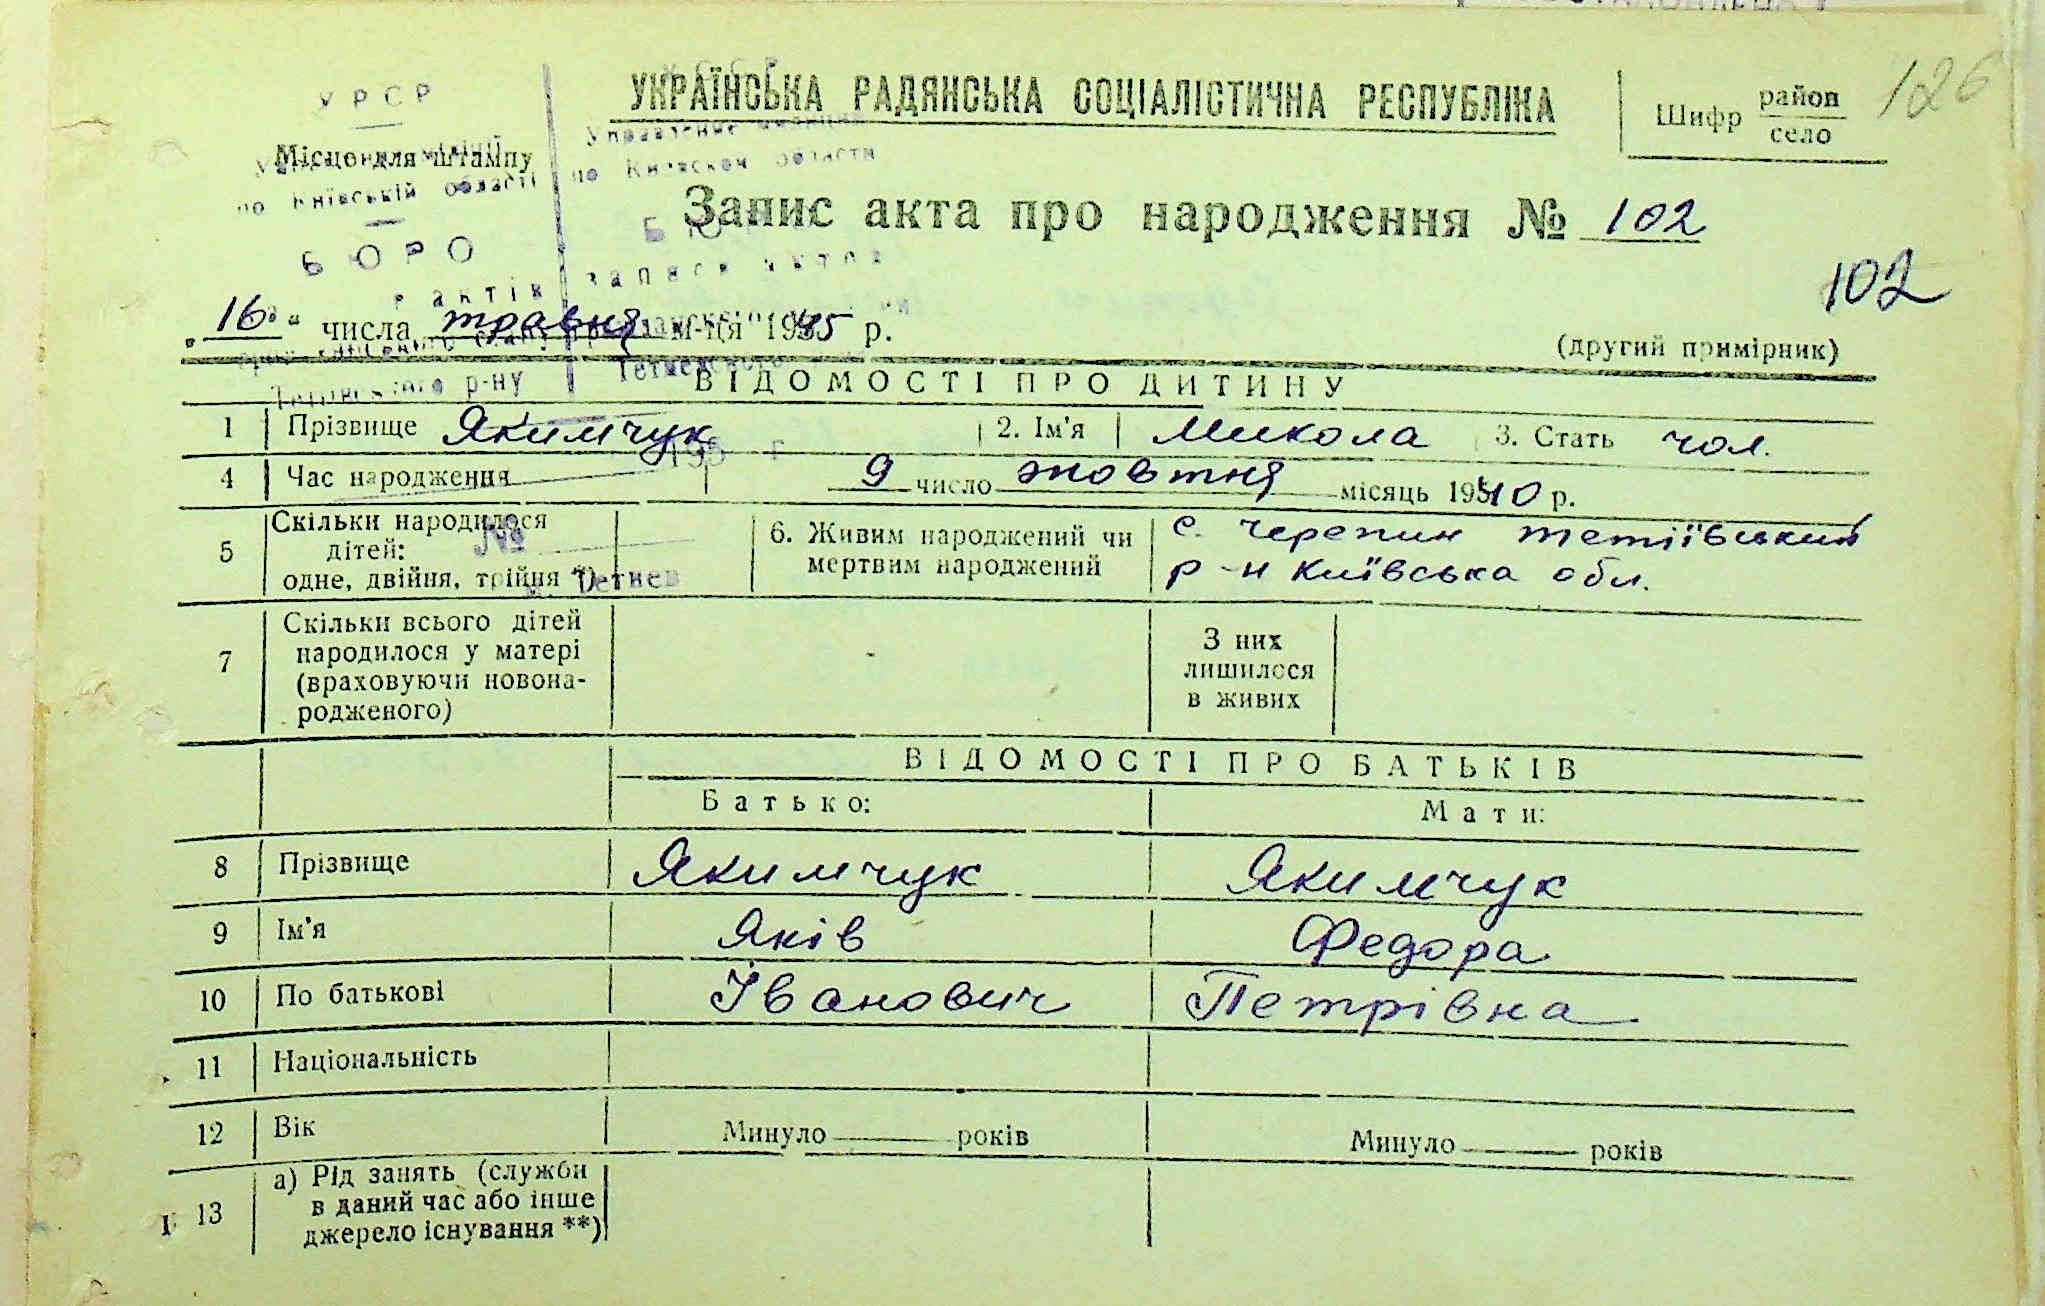 УКРАЇНСЬКА РАДЯНСЬКА СОЦІАЛІСТИЧНА РЕСПУБЛІКА
Шифр район
село
126
УРСР
Місце для штампу
по Київській області
по Киевской области
БЮРО
Запис акта про народження № 102
102
„16“ числа травня м-ця 1945 р.
(другий примірник)
р-ну
ВІДОМОСТІ ПРО ДИТИНУ
1 Прізвище Якимчук 2. Ім'я Микола 3. Стать чол.
4 Час народження 9 число жовтня місяць 1940 р.
5 Скільки народилося дітей: одне, двійня, трійня *)
№
Тетиев
6. Живим народжений чи мертвим народжений
с. Черепин Тетіївський
р-н Київська обл.
7 Скільки всього дітей народилося у матері (враховуючи новонародженого)
З них лишилося в живих
ВІДОМОСТІ ПРО БАТЬКІВ
Батько: Мати:
8 Прізвище Якимчук Якимчук
9 Ім'я Яків Федора
10 По батькові Іванович Петрівна
11 Національність
12 Вік Минуло років Минуло років
13 а) Рід занять (служби в даний час або інше джерело існування **)